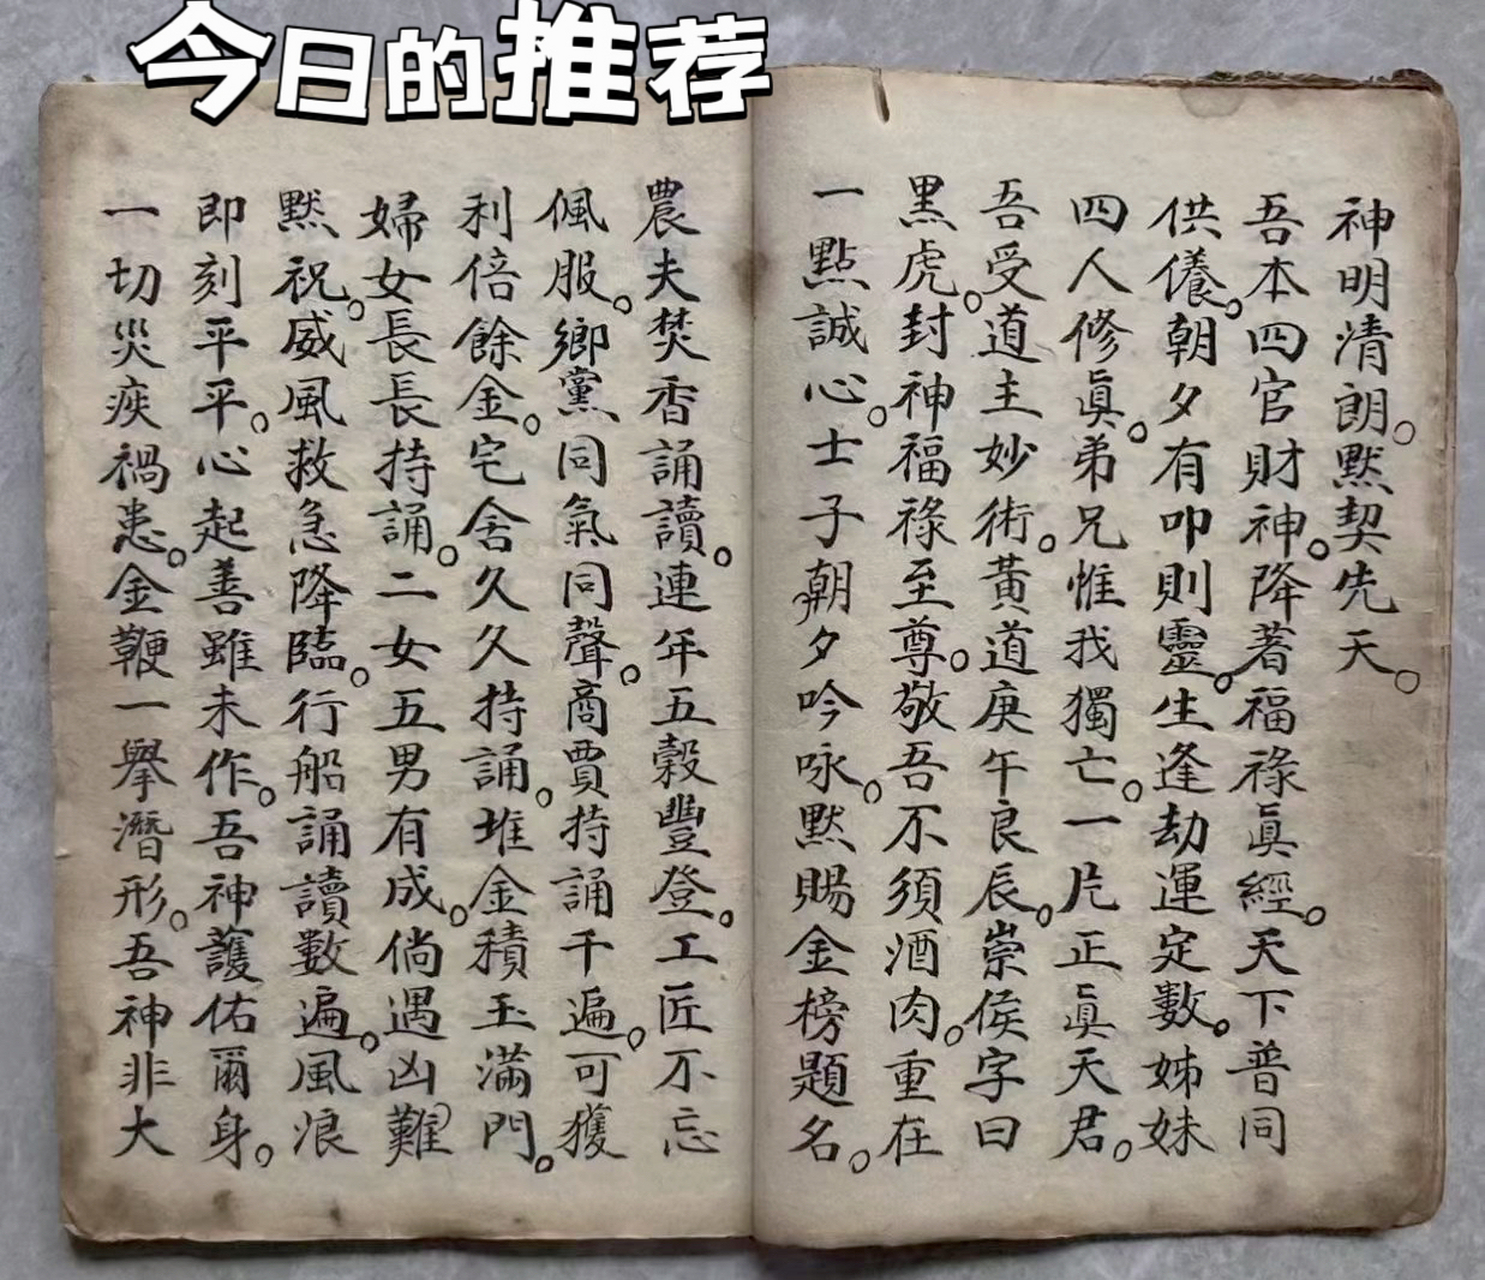 今日的推荐
神明清朗。默契先天。
吾本四官財神。降著福祿眞經。天下普同
供養。朝夕有叩則靈。生逢劫運定數。姊妹
四人修眞。弟兄惟我獨亡。一片正眞天君。
吾受道主妙術。黃道庚午良辰。崇侯字曰
黑虎。封神福祿至尊。敬吾不須酒肉。重在
一點誠心。士子朝夕吟咏。默賜金榜題名。
農夫焚香誦讀。連年五穀豐登。工匠不忘
佩服。鄉黨同氣同聲。商賈持誦千遍。可獲
利倍餘金。宅舍久久持誦。堆金積玉滿門。
婦女長長持誦。二女五男有成。倘遇凶難
默祝。威風救急降臨。行船誦讀數遍。風浪
即刻平平。心起善雖未作。吾神護佑爾身。
一切災疾禍患。金鞭一舉潛形。吾神非大